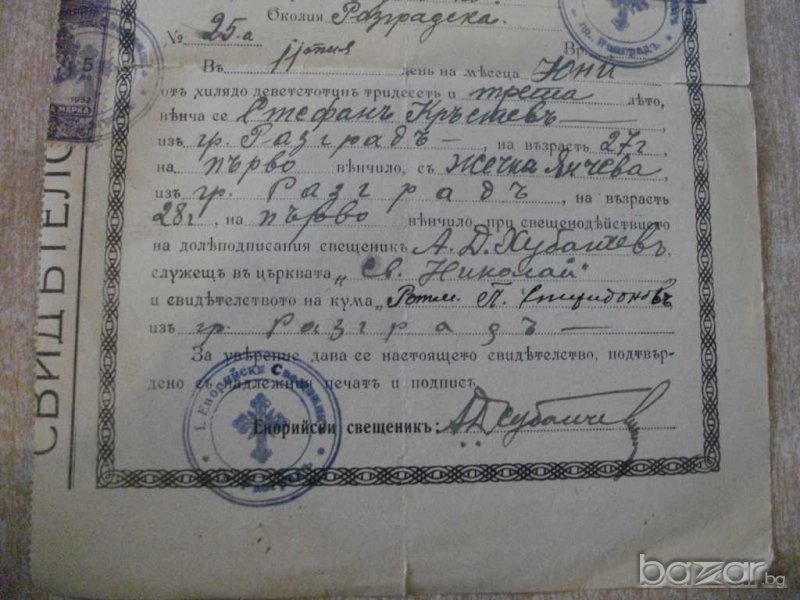 Околия Разградска.
№ 25-а
Въ день на месеца Юни
отъ хилядо деветстотинъ тридесеть и трета лѣто,
вѣнча се Стефанъ Кръстевъ
изъ гр. Разградъ, на възрасть 27 г
на първо вѣнчило, съ Жечка Янчева,
изъ гр. Разградъ, на възрасть
28 г, на първо вѣнчило, при свещенодѣйствието
на долѣподписания свещеникъ А. Д. Хубанчевъ,
служещъ въ църквата „Св. Николай"
и свидѣтелството на кума „Ротм. П.
изъ гр. Разградъ
За увѣрение дава се настоящето свидѣтелство, подтвър-
дено съ надлежния печатъ и подпись
Енорийски свещеникъ: АДХубанчев
СВИДѢТЕЛС
5
МАРКА
1932
I. Енорийски Свещеник
bazar.bg